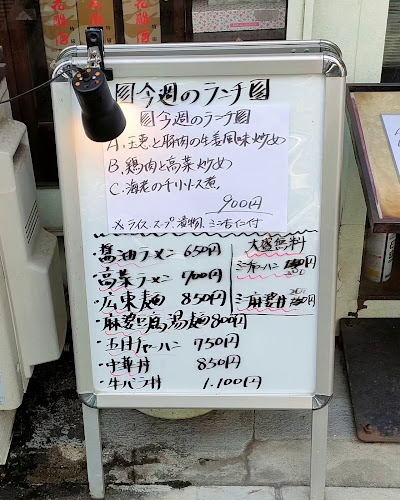 圓今週のランチ圓
圓今週のランチ圓
A. 玉恵と豚肉の生姜風味炒め
B. 鶏肉と高菜炒め
C. 海老のチリソース煮
900円
※ライス、スープ、漬物、ミニ杏仁付
・醤油ラーメン 650円
・高菜ラーメン 700円
・広東麺 850円
・麻婆豆腐湯麺 800円
・五目チャーハン 750円
・中華丼 850円
・牛バラ丼 1.100円
大盛無料
ミニチャーハン
ミニ麻婆丼